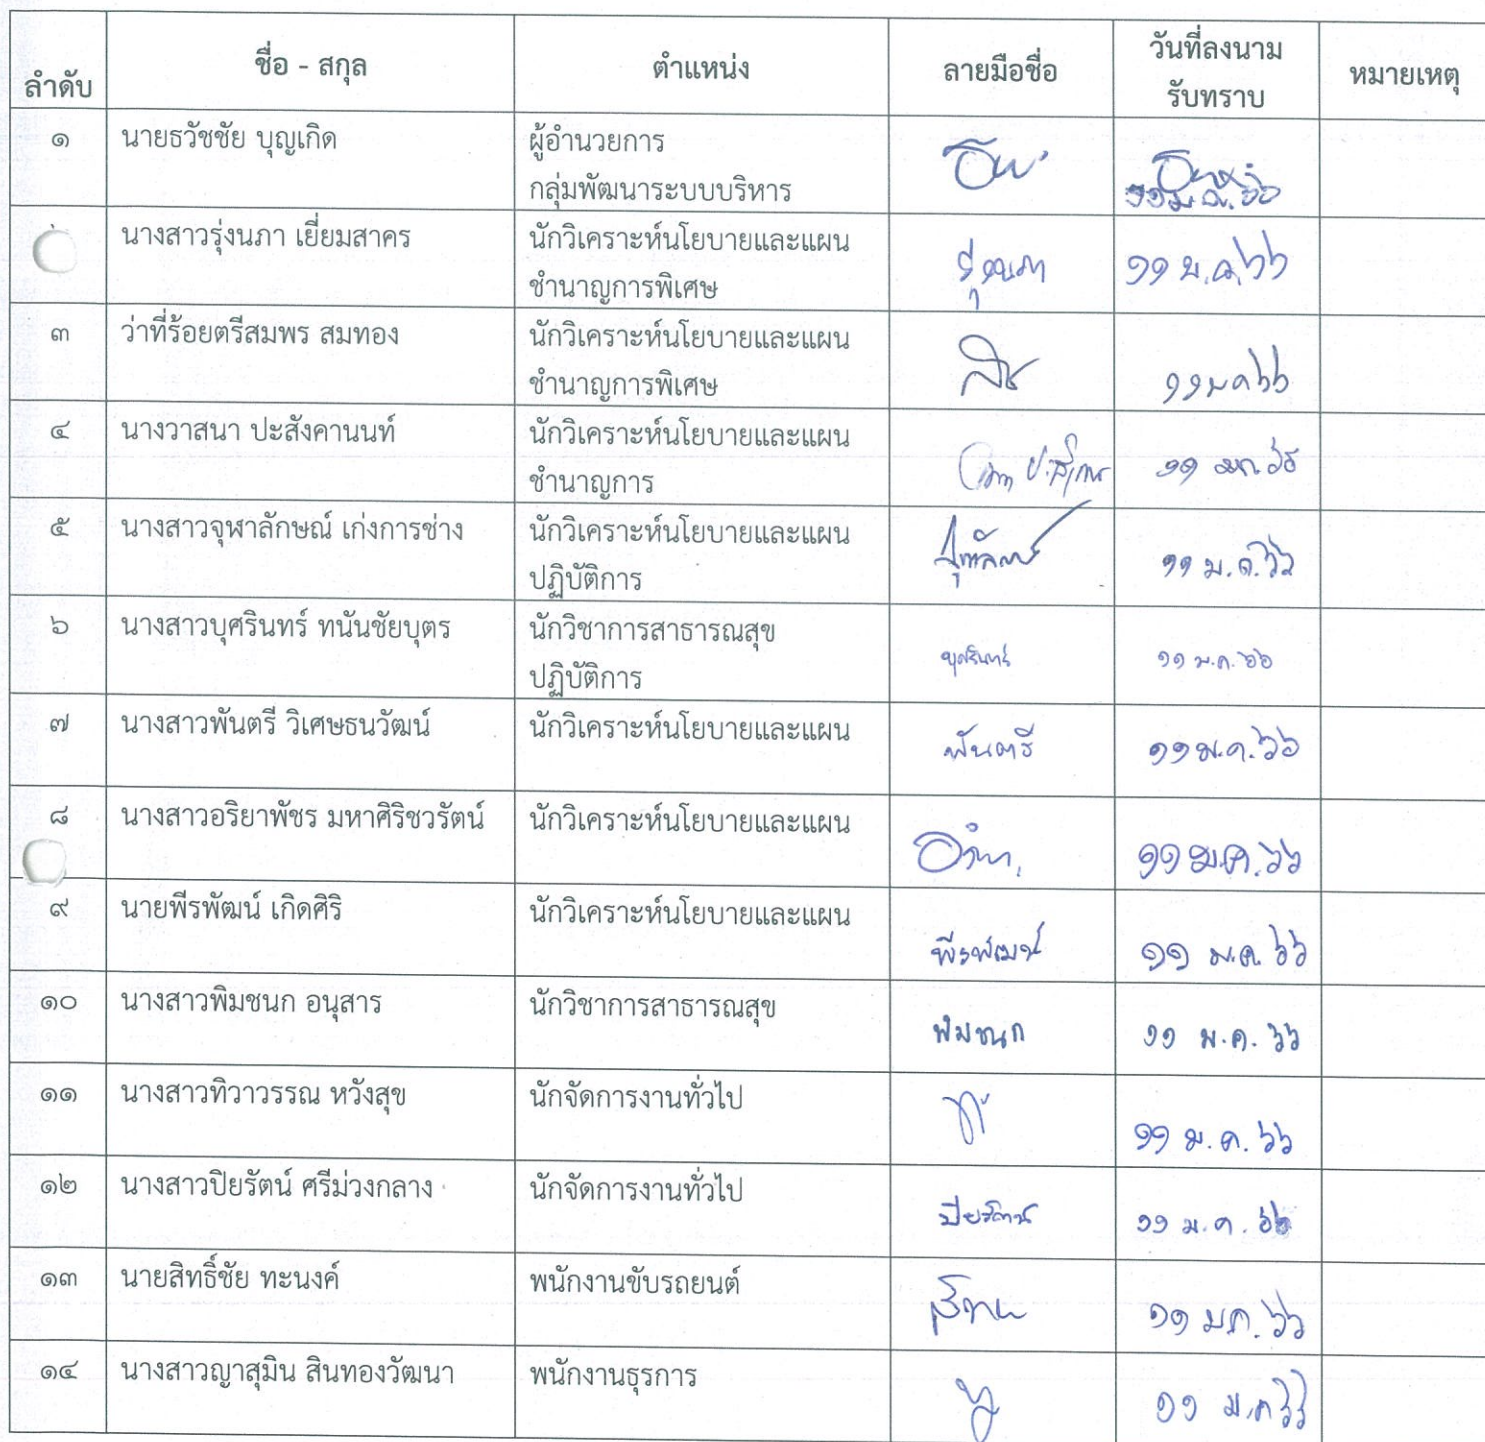 ลำดับ ชื่อ - สกุล ตำแหน่ง ลายมือชื่อ วันที่ลงนาม หมายเหตุ
รับทราบ
๑ นายธวัชชัย บุญเกิด ผู้อำนวยการ
กลุ่มพัฒนาระบบบริหาร
นางสาวรุ่งนภา เยี่ยมสาคร นักวิเคราะห์นโยบายและแผน รุ่งนภา ๑๑ ม.ค. ๖๖
ชำนาญการพิเศษ
๓ ว่าที่ร้อยตรีสมพร สมทอง นักวิเคราะห์นโยบายและแผน
ชำนาญการพิเศษ ๑๑ ม ค ๖๖
๔ นางวาสนา ปะสังคานนท์ นักวิเคราะห์นโยบายและแผน
ชำนาญการ ๑๑ มค. ๖๖
๕ นางสาวจุฬาลักษณ์ เก่งการช่าง นักวิเคราะห์นโยบายและแผน จุฬาลักษณ์
ปฏิบัติการ ๑๑ ม.ค. ๖๖
๖ นางสาวบุศรินทร์ ทนันชัยบุตร นักวิชาการสาธารณสุข
ปฏิบัติการ บุศรินทร์ ๑๑ ม.ค. ๖๖
๗ นางสาวพันตรี วิเศษธนวัฒน์ นักวิเคราะห์นโยบายและแผน พันตรี ๑๑ ม.ค. ๖๖
๘ นางสาวอริยาพัชร มหาศิริชวรัตน์ นักวิเคราะห์นโยบายและแผน
๑๑ ม.ค. ๖๖
๙ นายพีรพัฒน์ เกิดศิริ นักวิเคราะห์นโยบายและแผน
พีรพัฒน์ ๑๑ ม.ค. ๖๖
๑๐ นางสาวพิมชนก อนุสาร นักวิชาการสาธารณสุข
พิมชนก ๑๑ ม.ค. ๖๖
๑๑ นางสาวทิวาวรรณ หวังสุข นักจัดการงานทั่วไป
๑๑ ม.ค. ๖๖
๑๒ นางสาวปิยรัตน์ ศรีม่วงกลาง นักจัดการงานทั่วไป
ปิยรัตน์ ๑๑ ม.ค. ๖๖
๑๓ นายสิทธิ์ชัย ทะนงค์ พนักงานขับรถยนต์
๑๑ มค. ๖๖
๑๔ นางสาวญาสุมิน สินทองวัฒนา พนักงานธุรการ
๑๑ ม.ค ๖๖